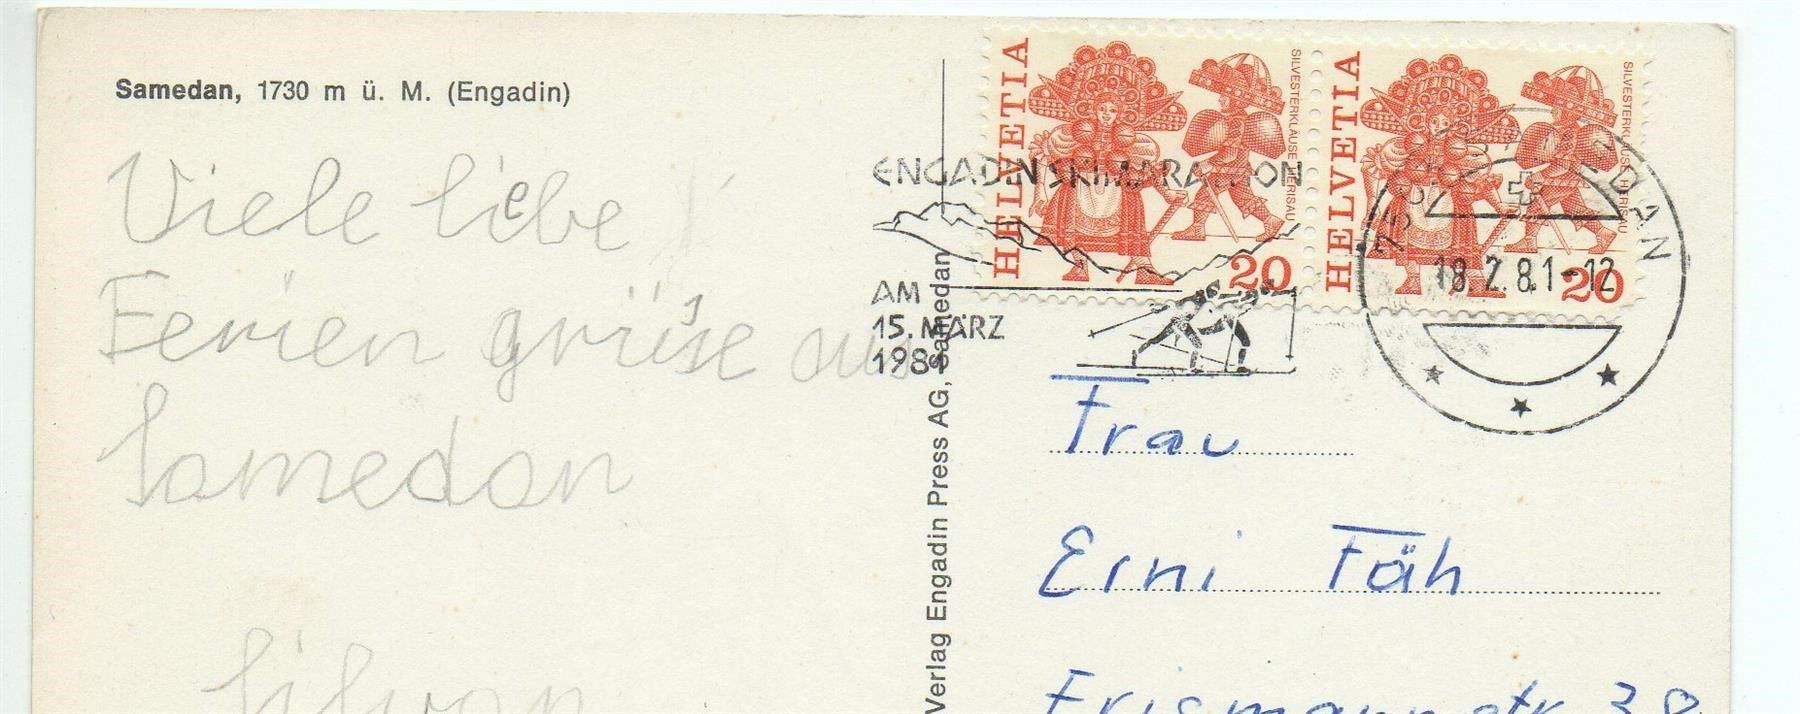 Samedan, 1730 m ü. M. (Engadin)
Viele liebe
Feriengrüsse aus
Samedan
Silvan
Verlag Engadin Press AG, Samedan
HELVETIA
SILVESTERKLÄUSE HERISAU
20
HELVETIA
SILVESTERKLÄUSE HERISAU
20
ENGADIN SKIMARATHON
AM
15. MÄRZ
1981
18.2.81-12
Frau
Erni Fäh
Erismannstr. 38